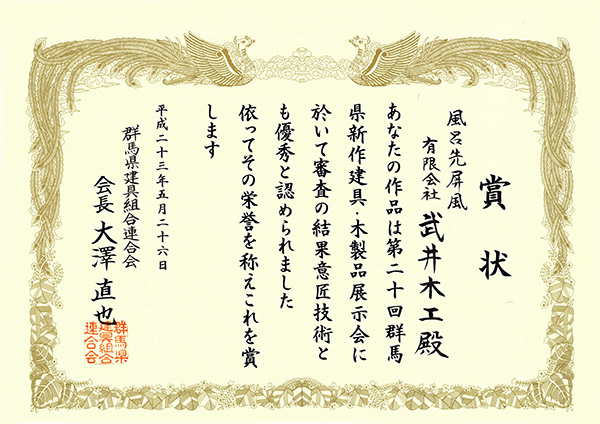 賞状
風呂先屏風
有限会社 武井木工殿
あなたの作品は第二十回群馬
県新作建具・木製品展示会に
於いて審査の結果意匠技術と
も優秀と認められました
依ってその栄誉を称えこれを賞
します
平成二十三年五月二十六日
群馬県建具組合連合会
会長 大澤直也
群馬県
建具組合
連合会